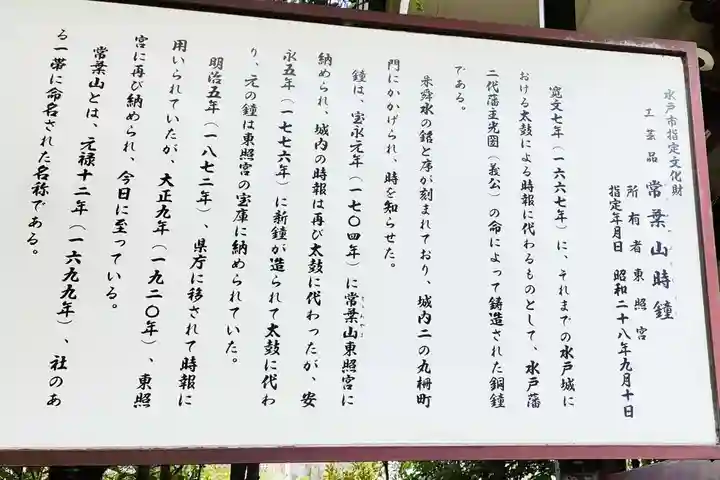 水戸市指定文化財
工芸品 常葉山時鐘
所有者 東照宮
指定年月日 昭和二十八年九月十日
寛文七年（一六六七年）に、それまでの水戸城に
おける太鼓による時報に代わるものとして、水戸藩
二代藩主光圀（義公）の命によって鋳造された銅鐘
である。
朱舜水の銘と序が刻まれており、城内二の丸柵町
門にかかげられ、時を知らせた。
鐘は、宝永元年（一七〇四年）に常葉山東照宮に
納められ、城内の時報は再び太鼓に代わったが、安
永五年（一七七六年）に新鐘が造られて太鼓に代わ
り、元の鐘は東照宮の宝庫に納められていた。
明治五年（一八七二年）、県庁に移されて時報に
用いられていたが、大正九年（一九二〇年）、東照
宮に再び納められ、今日に至っている。
常葉山とは、元禄十二年（一六九九年）、社のあ
る一帯に命名された名称である。